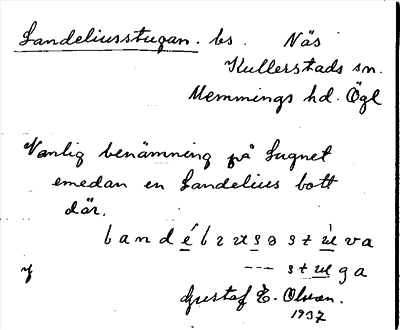 Landeliusstugan. bs. Näs
Kullerstads sn.
Memmings hd. Ögl
Vanlig benämning på Lugnet
emedan en Landelius bott
där.
l a n d é l ɪ ʉ s ə s t ù v a
--- s t ʉ g a
Gustaf E. Olson.
1937